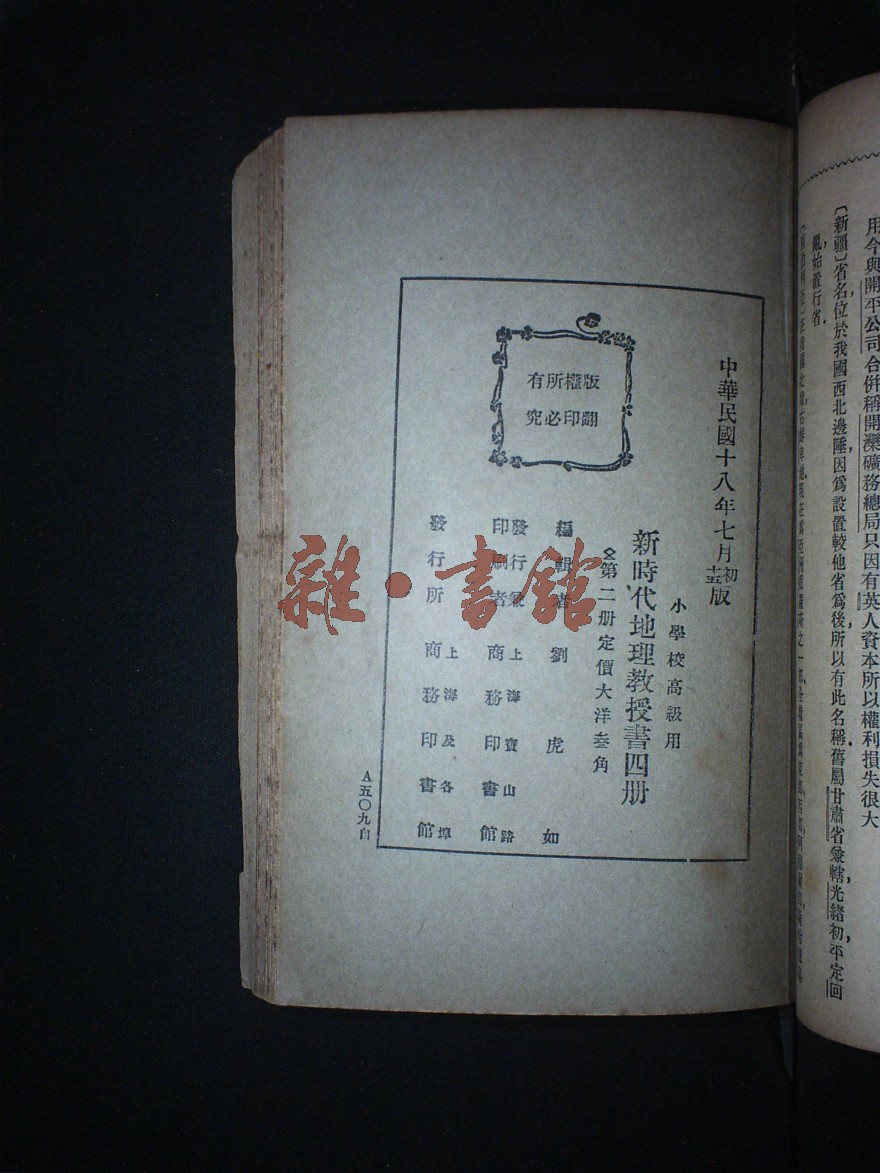 用今與開平公司合併稱開灤礦務總局只因有英人資本所以權利損失很大
〔新疆〕省名位於我國西北邊陲因爲設置較他省爲後所以有此名稱舊屬甘肅省兼轄光緒初平定回
亂始置行省
中華民國十八年七月初版
小學校高級用
新時代地理教授書四册
第二册定價大洋叁角
版權所有
翻印必究
編輯者 劉虎如
發行兼印刷者 上海寶山路 商務印書館
發行所 上海及各埠 商務印書館
A五〇九自
雜·書館